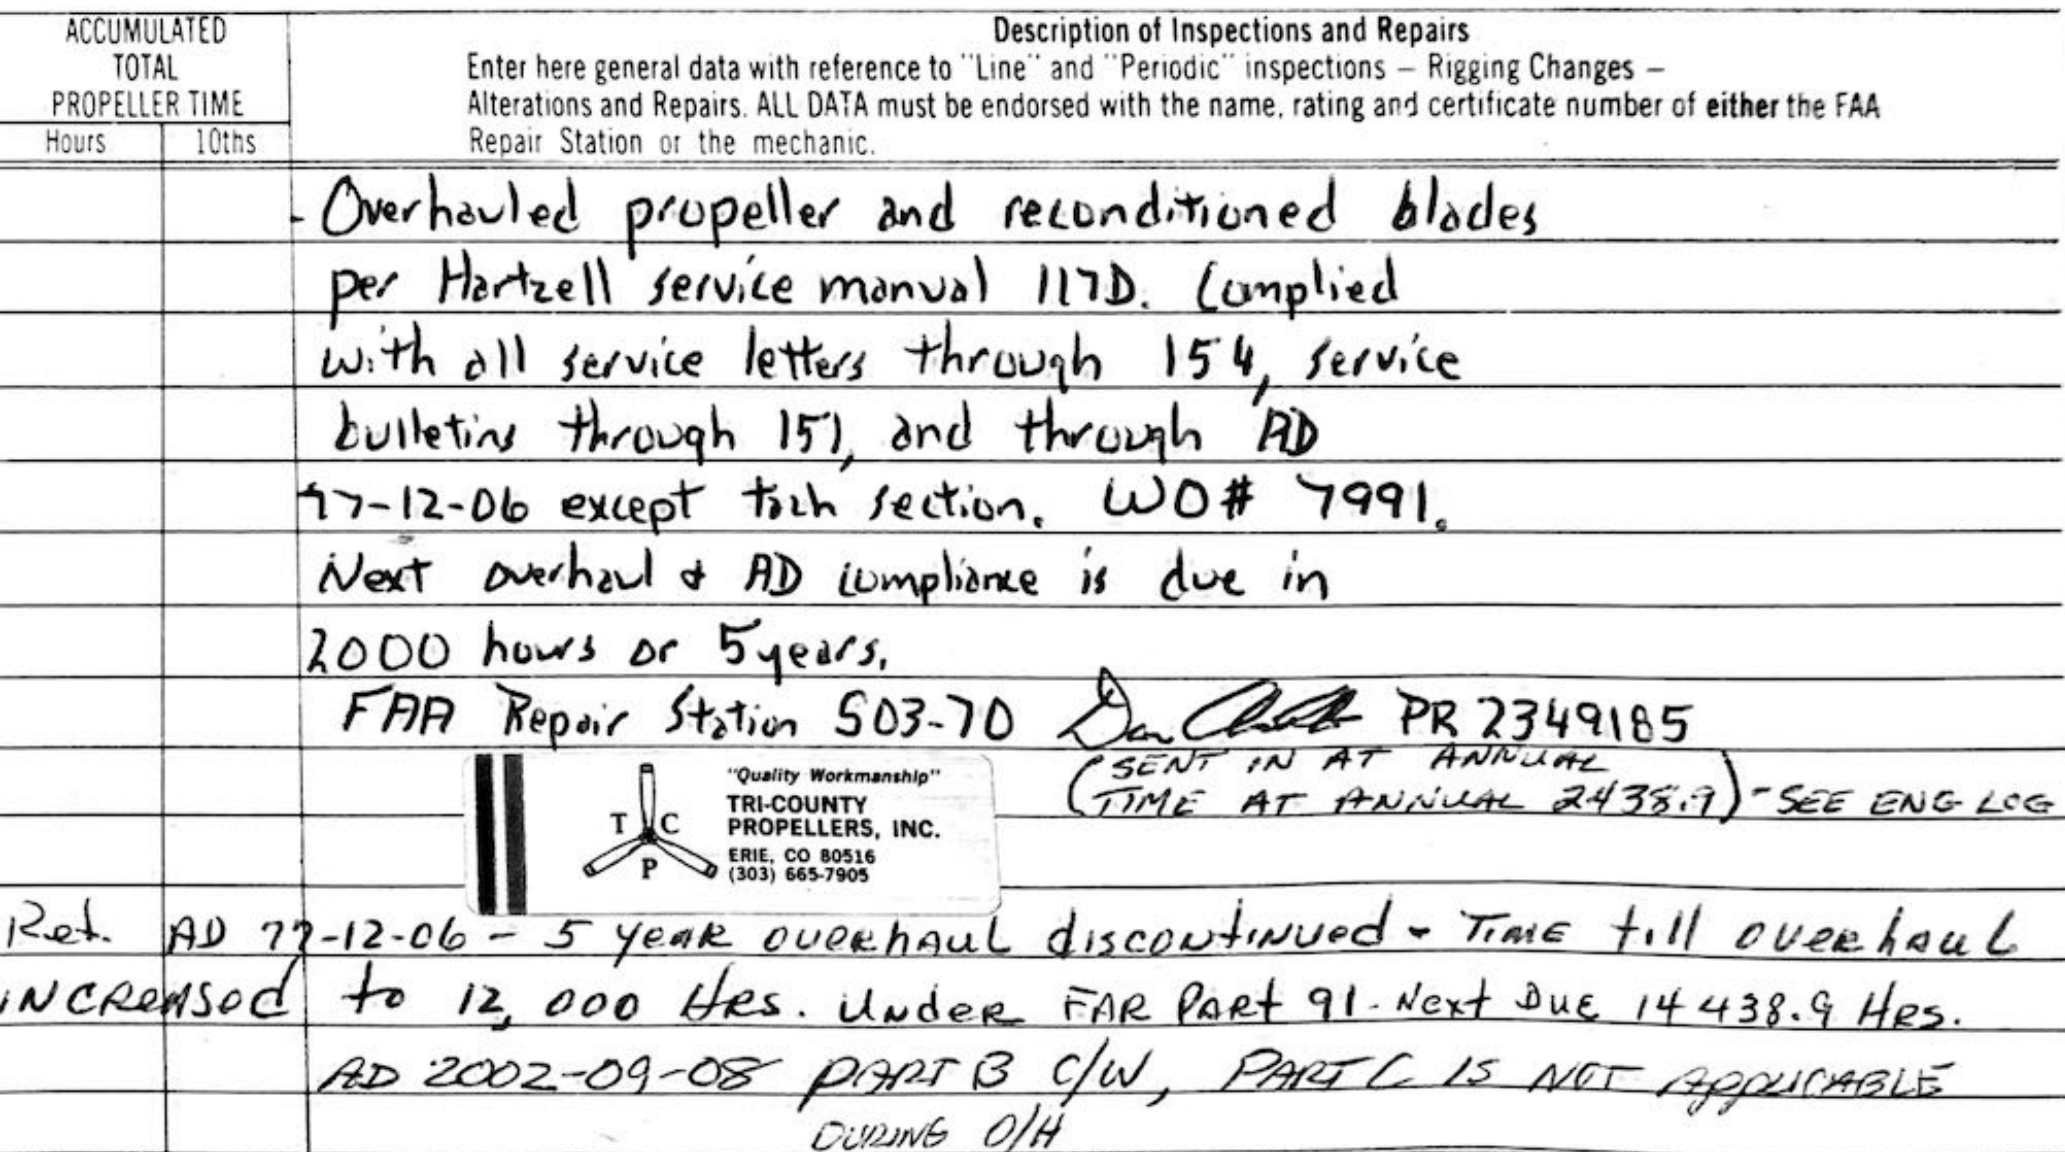 ACCUMULATED
TOTAL
PROPELLER TIME
Hours 10ths
Description of Inspections and Repairs
Enter here general data with reference to "Line" and "Periodic" inspections — Rigging Changes —
Alterations and Repairs. ALL DATA must be endorsed with the name, rating and certificate number of either the FAA
Repair Station or the mechanic.
- Overhauled propeller and reconditioned blades
per Hartzell service manual 117D. Complied
with all service letters through 154, service
bulletins through 151, and through AD
77-12-06 except tach section. WO# 7991.
Next overhaul & AD compliance is due in
2000 hours or 5 years.
FAA Repair Station 503-70 Dan PR 2349185
(SENT IN AT ANNUAL
TIME AT ANNUAL 2438.9) - SEE ENG LOG
"Quality Workmanship"
TRI-COUNTY
PROPELLERS, INC.
ERIE, CO 80516
(303) 665-7905
T C
P
Ret. AD 77-12-06 - 5 year overhaul discontinued - Time till overhaul
increased to 12,000 Hrs. Under FAR Part 91 - Next Due 14438.9 Hrs.
AD 2002-09-08 PART B C/W, PART C IS NOT APPLICABLE
DURING O/H